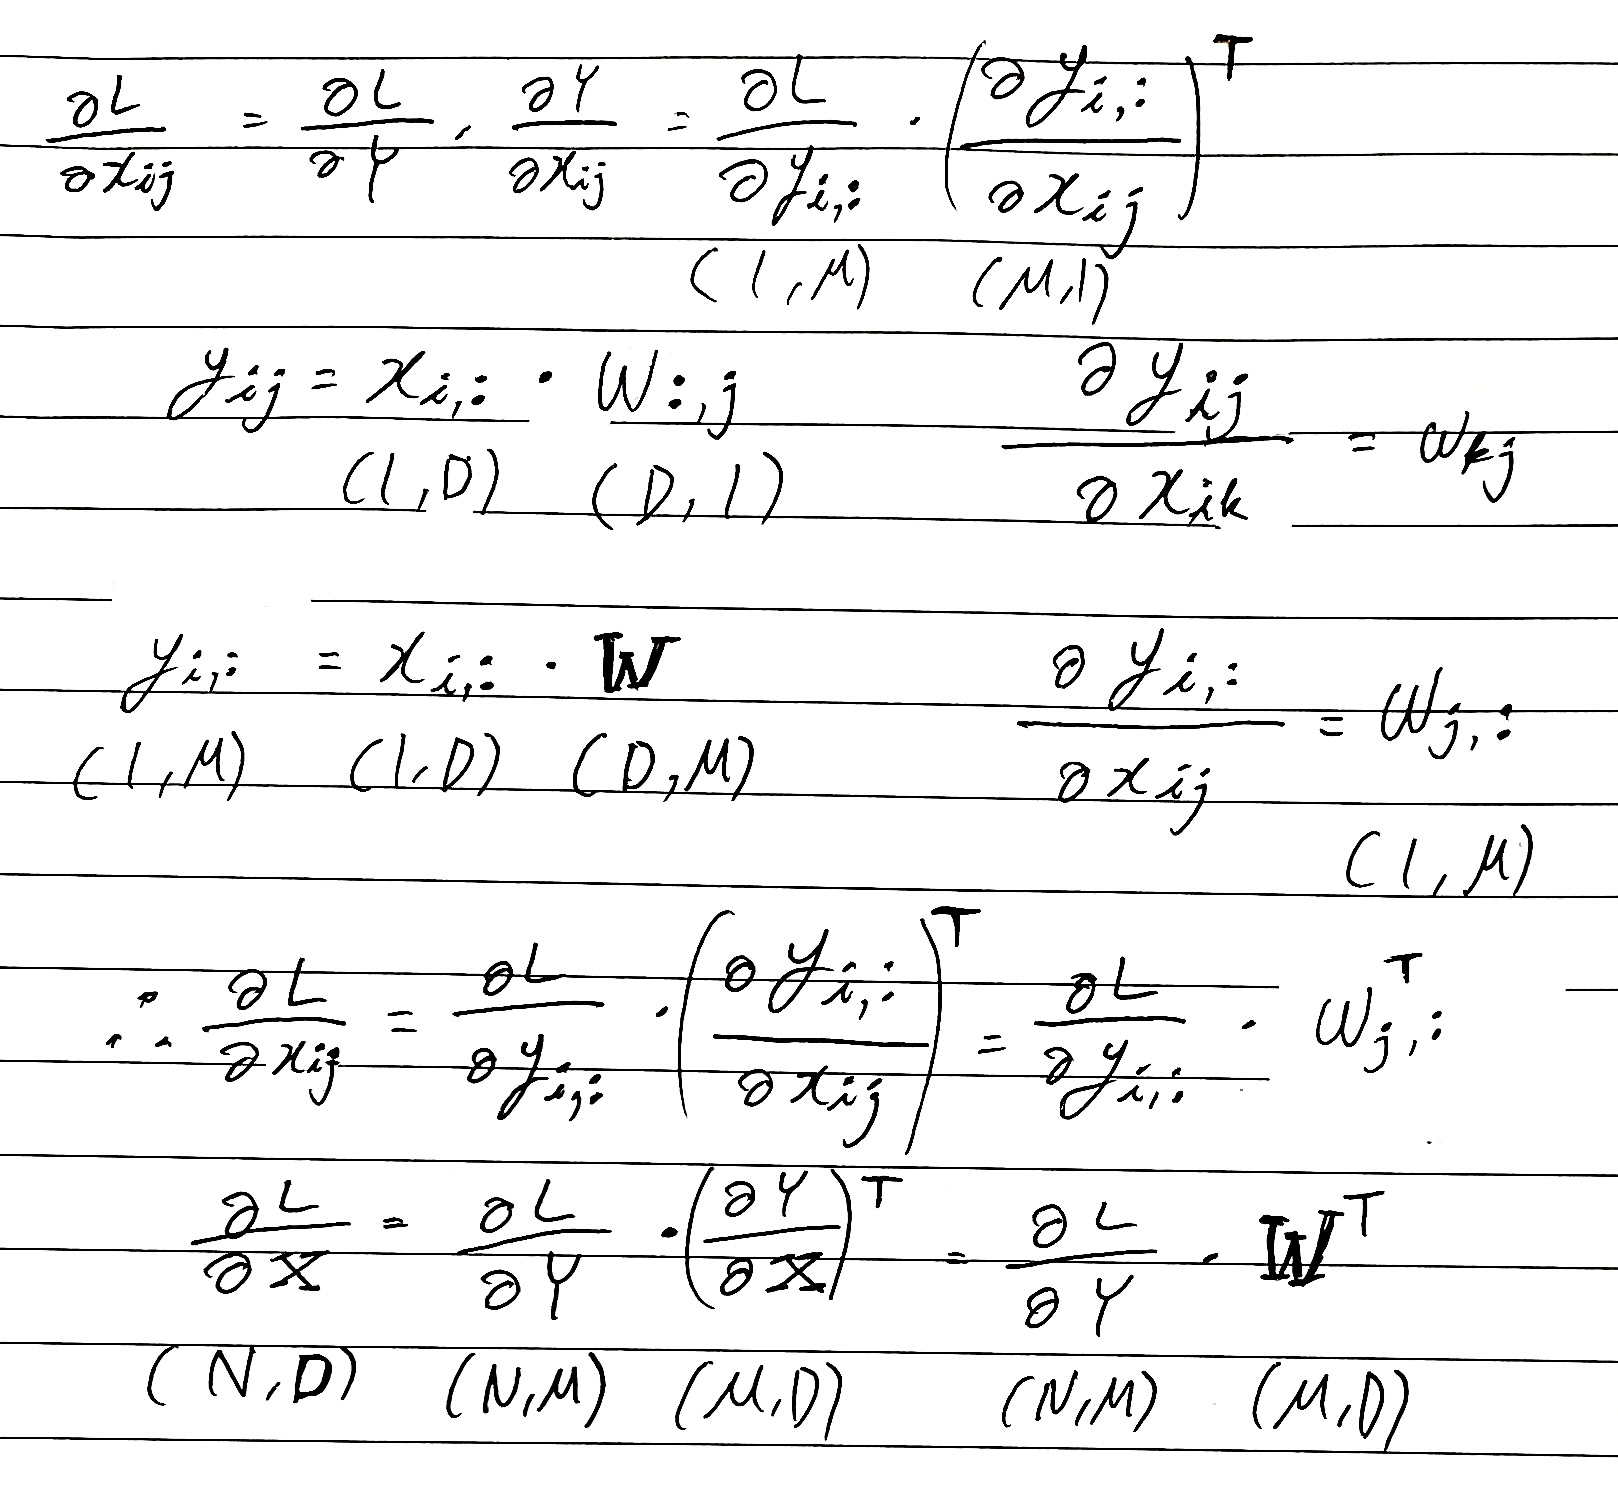 ∂L/∂x_ij = ∂L/∂Y · ∂Y/∂x_ij = ∂L/∂y_i,: · (∂y_i,:/∂x_ij)^T
(1,M) (M,1)
y_ij = x_i,: · W_:,j ∂y_ij/∂x_ik = w_kj
(1,D) (D,1)
y_i,: = x_i,: · W ∂y_i,:/∂x_ij = W_j,:
(1,M) (1,D) (D,M)
(1,M)
∴ ∂L/∂x_ij = ∂L/∂y_i,: · (∂y_i,:/∂x_ij)^T = ∂L/∂y_i,: · W^T_j,:
∂L/∂X = ∂L/∂Y · (∂Y/∂X)^T = ∂L/∂Y · W^T
(N,D) (N,M) (M,D) (N,M) (M,D)